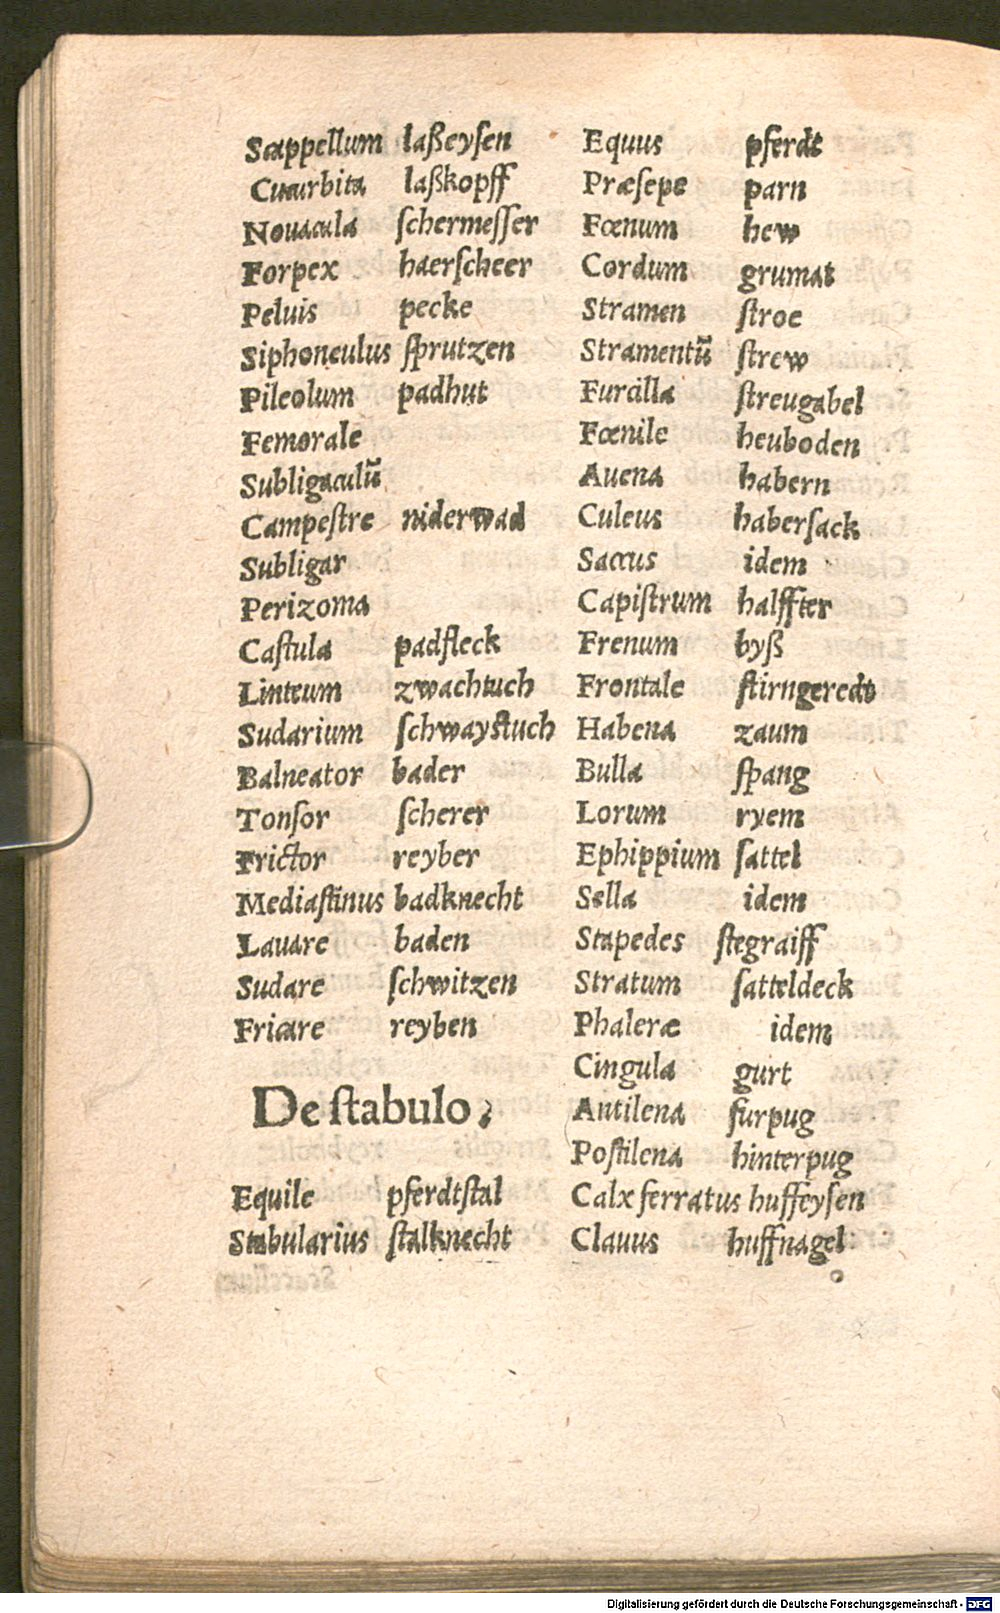 Scappellum laßeyſen
Cucurbita laßkopff
Nouacula ſchermeſſer
Forpex haerſcheer
Peluis pecke
Siphonculus ſprutzen
Pileolum padhut
Femorale
Subligaculū
Campeſtre niderwad
Subligar
Perizoma
Caſtula padfleck
Linteum zwachtuch
Sudarium ſchwayſtuch
Balneator bader
Tonſor ſcherer
Frictor reyber
Mediaſtinus badknecht
Lauare baden
Sudare ſchwitzen
Fricare reyben
De ſtabulo
Equile pferdtſtal
Stabularius ſtalknecht
Equus pferdt
Præſepe parn
Fœnum hew
Cordum grumat
Stramen ſtroe
Stramentū ſtrew
Furcilla ſtreugabel
Fœnile heuboden
Auena habern
Culeus haberſack
Saccus idem
Capiſtrum halffter
Frenum byß
Frontale ſtirngeredt
Habena zaum
Bulla ſpang
Lorum ryem
Ephippium ſattel
Sella idem
Stapedes ſtegraiff
Stratum ſatteldeck
Phaleræ idem
Cingula gurt
Antilena furpug
Poſtilena hinterpug
Calx ferratus huffeyſen
Clauus huffnagel
Digitalisierung gefördert durch die Deutsche Forschungsgemeinschaft - DFG